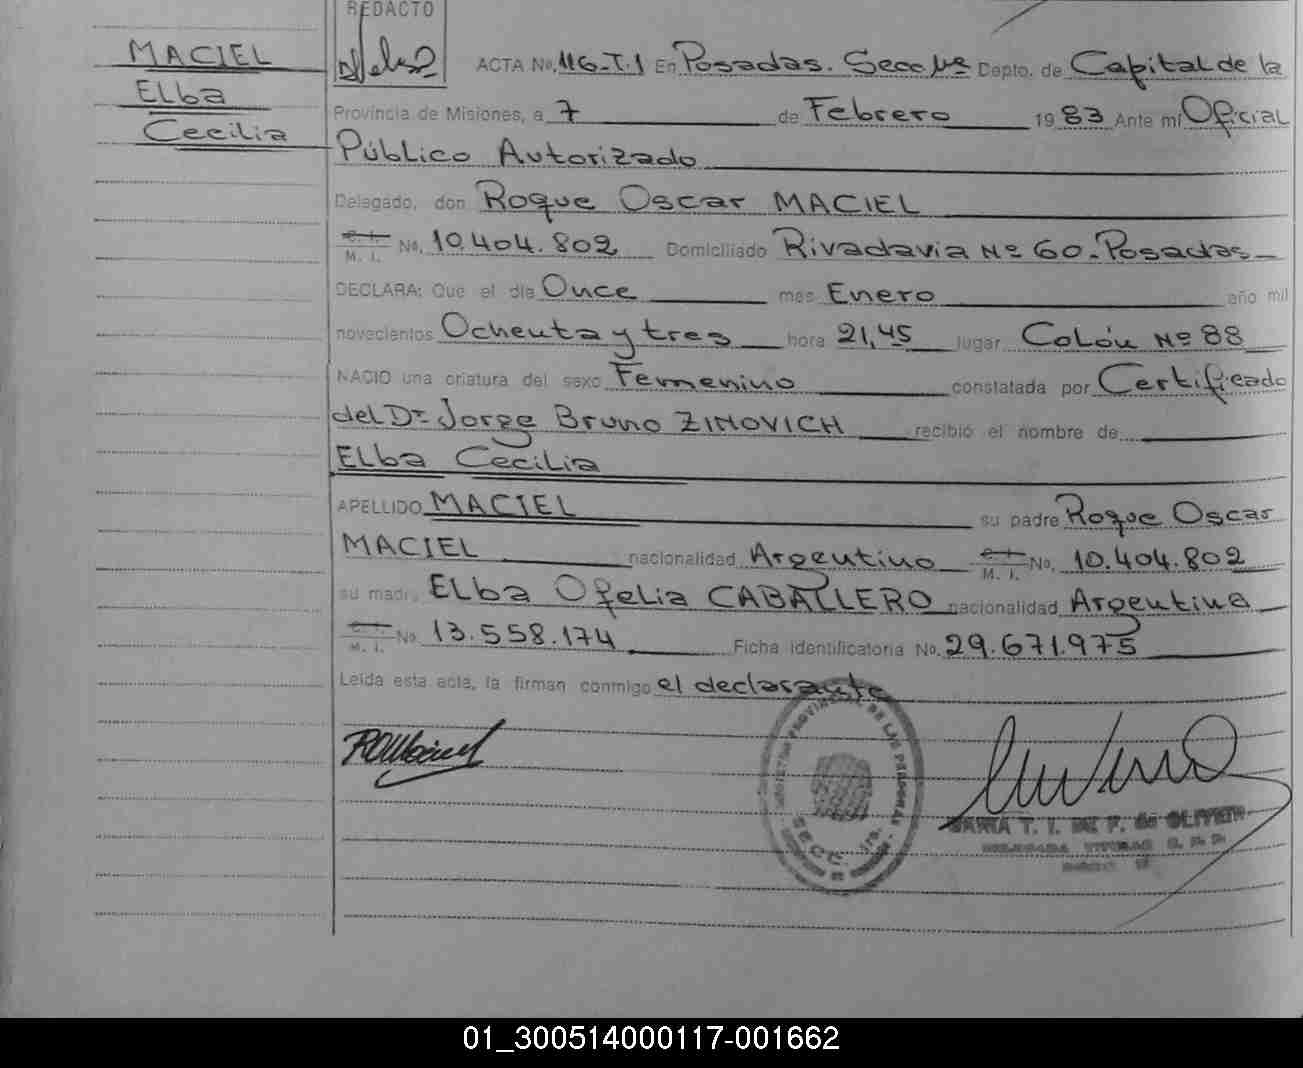 REDACTO
MACIEL
Elba
Cecilia
ACTA No. 116-T.1 En Posadas. Secc 1ra Depto. de Capital de la
Provincia de Misiones, a 7 de Febrero 1983 Ante mi Oficial
Público Autorizado
Delegado, don Roque Oscar MACIEL
C. I. M. I. No. 10.404.802 Domiciliado Rivadavia Nº 60. Posadas
DECLARA: Que el día Once mes Enero año mil
novecientos Ochenta y tres hora 21,45 lugar Colón Nº 88
NACIO una criatura del sexo Femenino constatada por Certificado
del Dr. Jorge Bruno ZINOVICH recibió el nombre de
Elba Cecilia
APELLIDO MACIEL su padre Roque Oscar
MACIEL nacionalidad Argentino C. I. M. I. No. 10.404.802
su madre Elba Ofelia CABALLERO nacionalidad Argentina
C. I. M. I. No. 13.558.174 Ficha identificatoria No. 29.671.975
Leida esta acta, la firman conmigo el declarante
PROVINCIAL DE LAS PERSONAS
SECC. 1a.
MARIA T. I. DE F. de OLIVEIRA
DELEGADA TITULAR
01_300514000117-001662